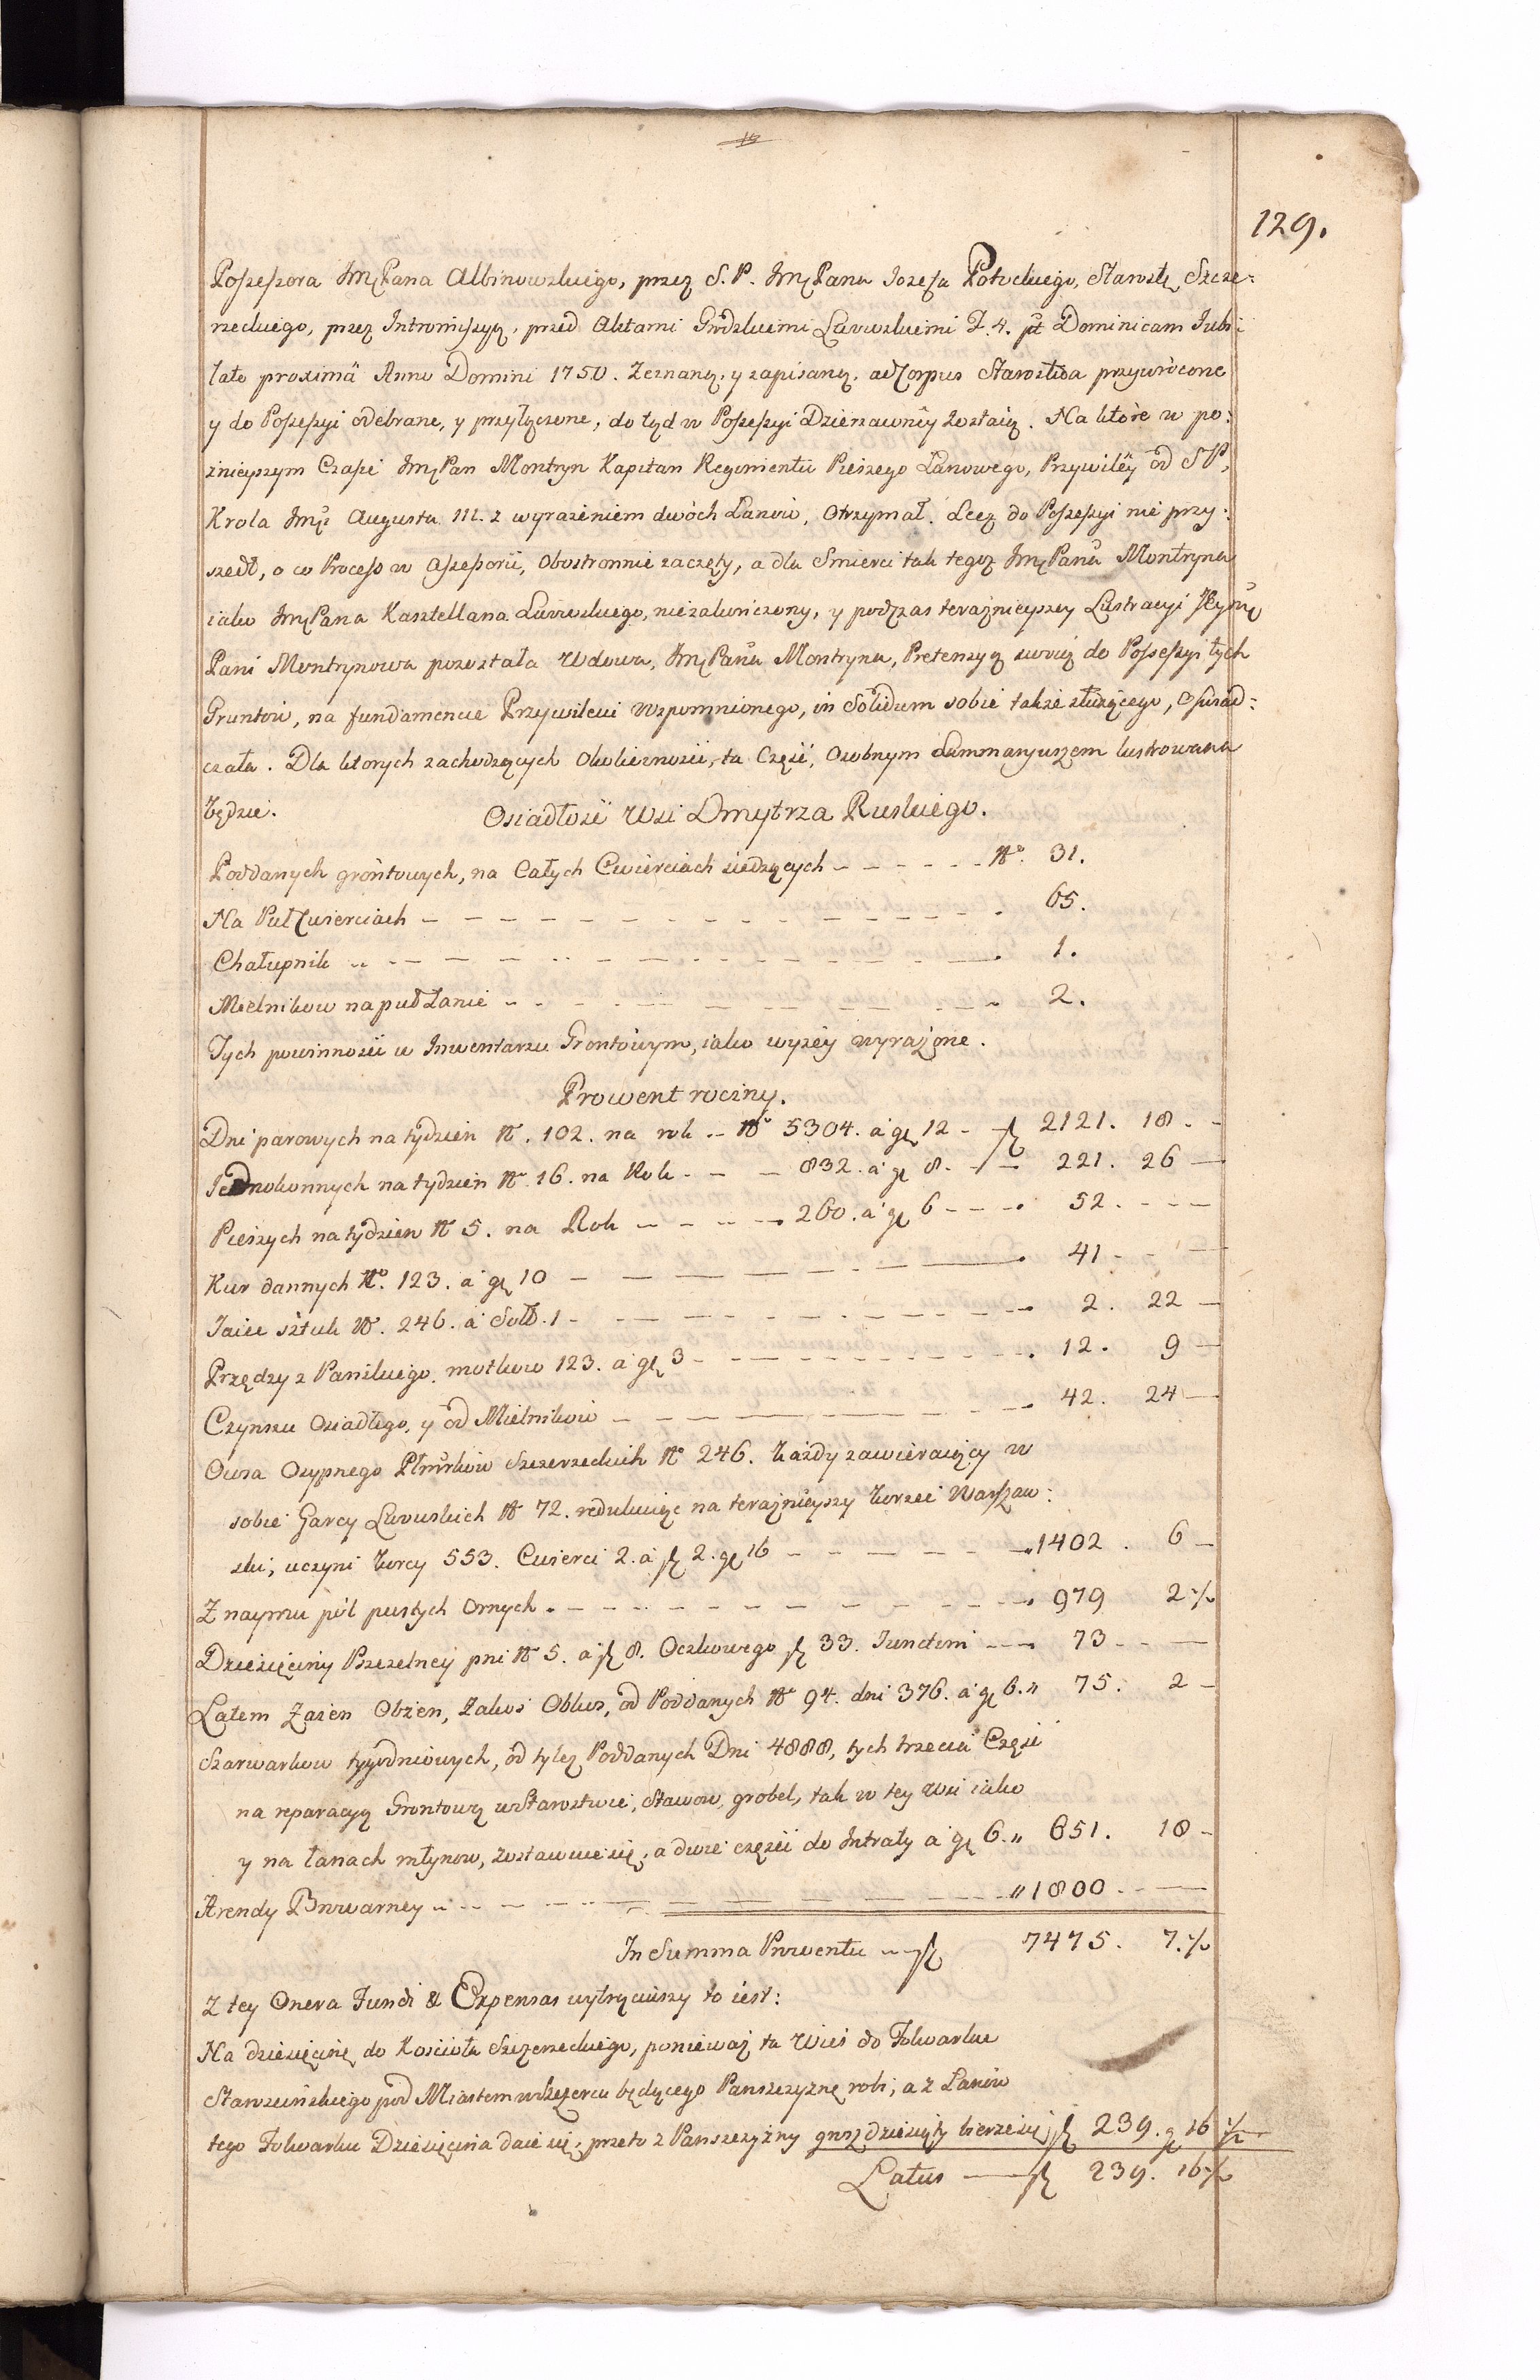 129.
Possessora JmPana Albinowskiego, przez S. P. JmPana Jozefa Potockiego, Starostę Szcze:
rzeckiego, przez Intromissyą, przed Aktami Grodzkiemi Lwowskiemi F. 4. pt Dominicam Jubi
late proximâ Anno Domini 1750. Zeznaną, y zapisaną, ad Corpus Starostwa przywrócone
y do Possessyi odebrane, y przyłączone, do tąd w Possessyi Dzierzawney zostaią. Na które w po:
znieyszym Czasie JmPan Montryn Kapitan Regimentu Pieszego Łanowego, Przywiley od S P.
Krola Jmci Augusta III. z wyrażeniem dwóch Łanów, Otrzymał. Lecz do Possessyi nie przy:
szedł, o co Process w Assessorii, Obostronnie zaczęty, a dla Smierci tak tegoz JmPana Montryna
iako JmPana Kasztellana Lwowskiego, niezakończony, y podczas teraznieyszey Lustracyi
Pani Montrynowa pozostała Wdowa, JmPana Montryna, Pretensyą swoią do Possessyi tych
Gruntow, na fundamencie Przywileiu Wspomnionego, in Solidum sobie także służącego, Oswiad:
czała. Dla ktorych zachodzących Okolicznosci, ta Częsć, Osobnym Summaryuszem lustrowana
będzie.
Osiadłosć Wsi Dmytrza Ruskiego.
Poddanych grontowych, na Całych Cwierciach siedzących - - - - - - No. 31.
Na Puł Cwierciach - - - - - - 65.
Chałupnik - - - - - - 1.
Mielnikow na puł Łanie - - - - - - 2.
Tych powinnosci w Inwentarzu Grontowym, iako wyżey wyrażone.
Prowent roczny.
Dni parowych na tydzien No. 102. na rok - No 5304. à gr 12 - fl 2121. 18 - -
Jednokonnych na tydzien No. 16. na Rok - - - 832. à gr 8. - - 221. 26 -
Pieszych na tydzien No 5. na Rok - - - - 260. à gr 6 - - - 52. - - -
Kur dannych No. 123. à gr 10 - - - - - - 41 - - -
Jaiec sztuk No. 246. à Sold. 1 - - - - - - 2. 22 -
Przędzy z Panskiego, motkow 123. à gr 3 - - - - - - 12. 9 -
Czynszu Osiadłego, y od Mielnikow - - - - - - 42. 24 -
Owsa Osypnego Płmiarków Szczerzeckich No 246. każdy zawieraiący w
sobie Garcy Lwowskich No 72. redukuiąc na teraznieyszy korzec Warszaw:
ski, uczyni korcy 553. Cwierci 2. à fl 2. gr 16 - - - - - 1402. 6 -
Z naymu pól pustych Ornych - - - - - - 979 2 ½
Dziesięciny Pszczelney pni No 5. à fl 8. Oczkowego fl 33. Junctim - - - 73 - - -
Latem Zażen Obżen, Zakos Obkos, od Poddanych No 94. dni 376. à gr 6. " 75. 2 -
Szarwarkow tygodniowych, od tylez Poddanych Dni 4888, tych trzecia Częsć
na reparacyą Grontową w Starostwie, Stawow, grobel, tak w tey Wsi iako
y na łanach młynow, zostawuie się, a dwie częsci do Intraty à gr 6. " 651. 18 -
Arendy Browarney - - - - - - " 1800. - -
In Summa Prowentu - fl 7475. 7. ½
Z tey Onera Fundi & Expensas wytrąciwszy to iest:
Na dziesięcinę do Koscioła Szczerzeckiego, poniewaz ta Wieś do Folwarku
Starzeińskiego pod Miastem w Szczercu będącego Panszczyznę robi, a z Łanów
tego Folwarku Dziesięcina daie się, przeto z Panszczyzny grosz dziesiąty bierze się fl 239. gr 16 ½
Latus - fl 239. 16 ½